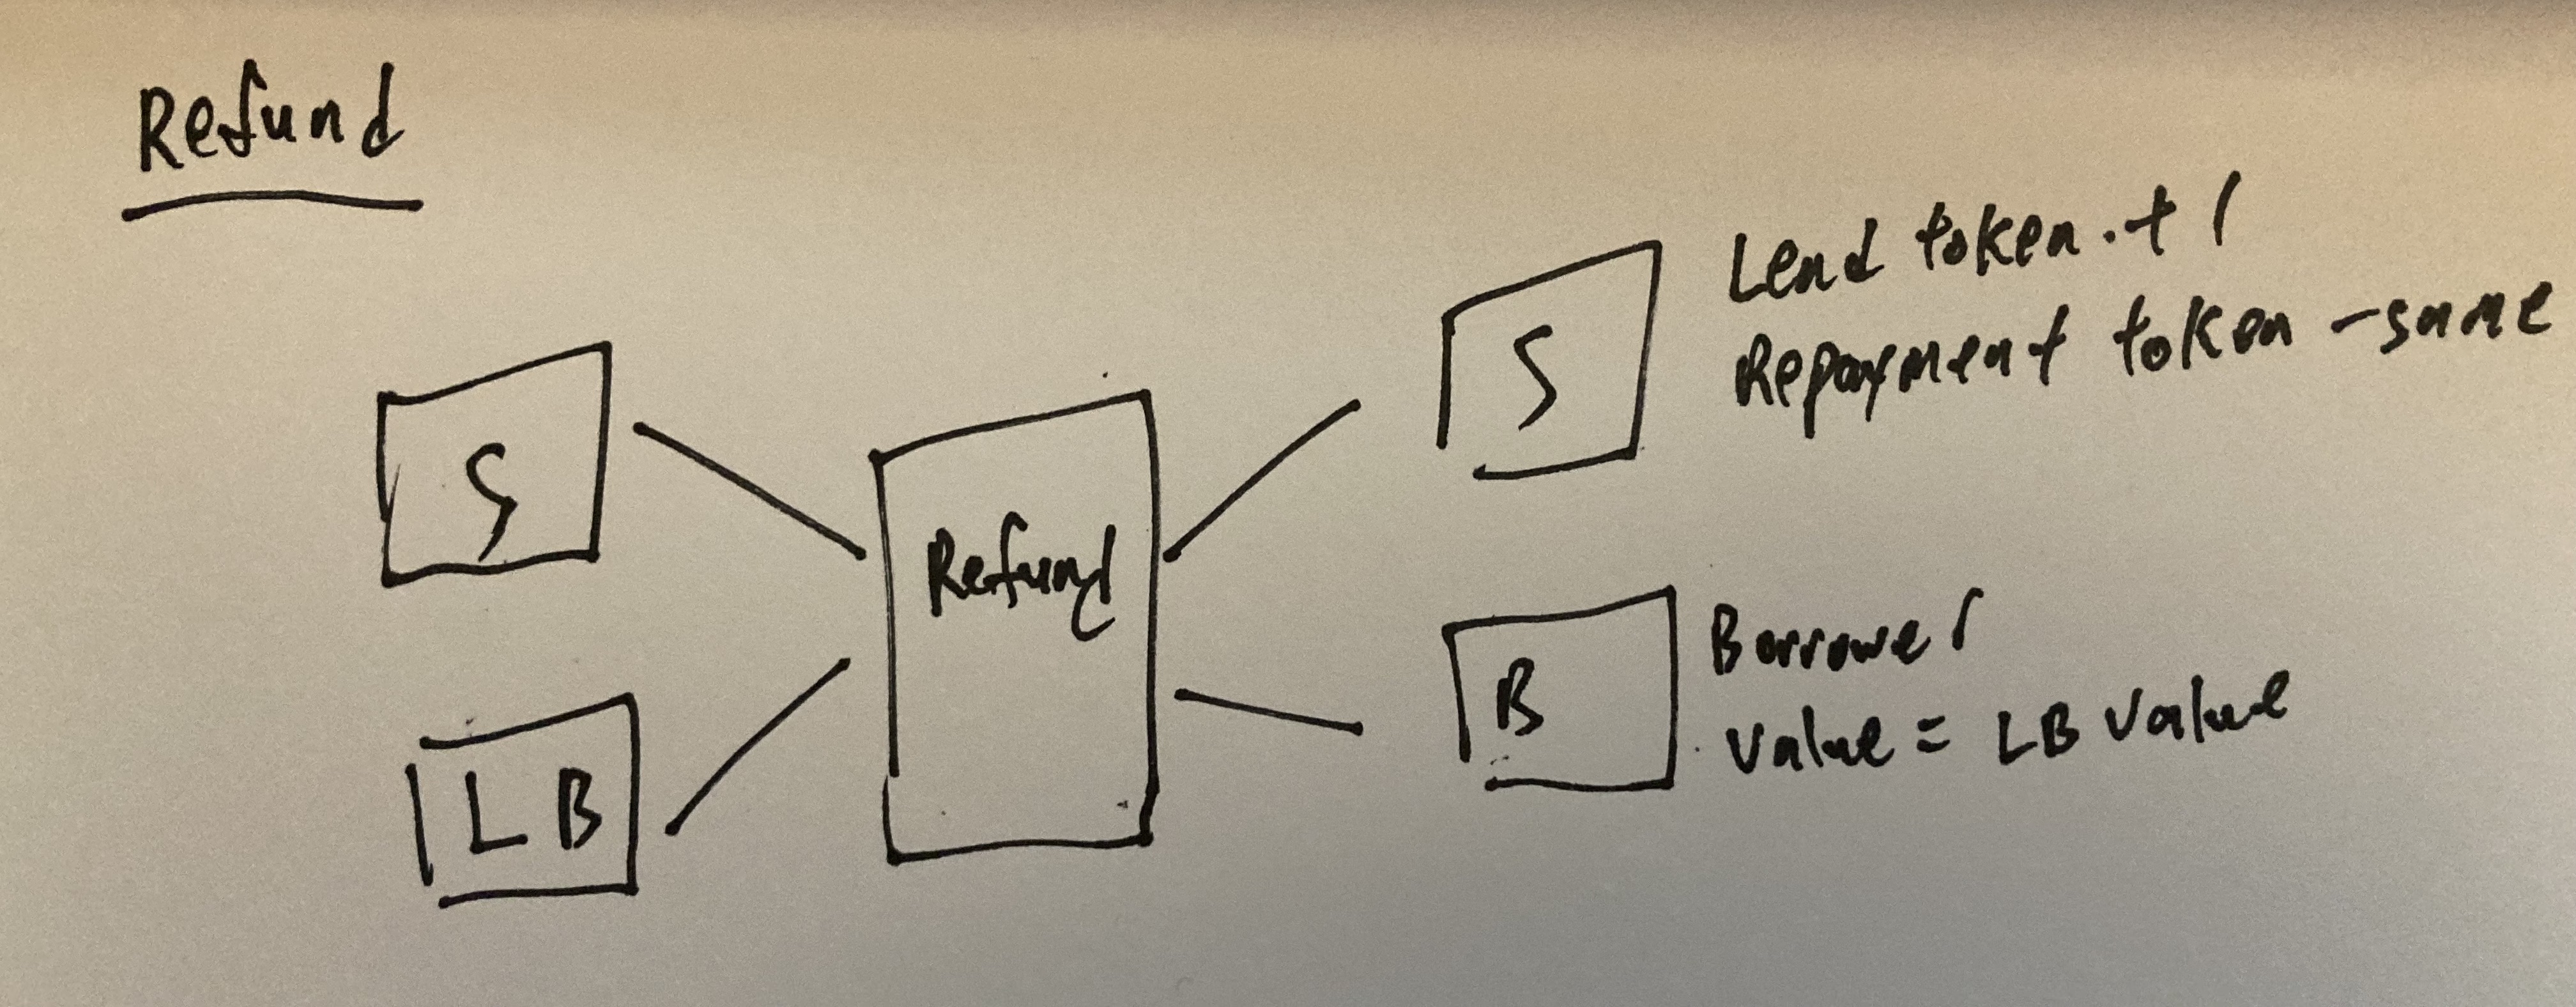 Refund
S
LB
Refund
S
Lend token. +1
Repayment token - same
B
Borrower
value = LB value